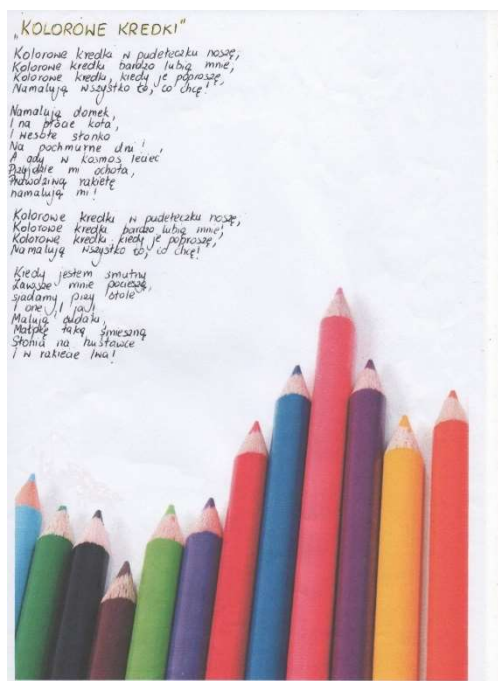 „KOLOROWE KREDKI"
Kolorowe kredki w pudełeczku noszę,
Kolorowe kredki bardzo lubią mnie,
Kolorowe kredki, kiedy je poproszę,
Namalują wszystko to, co chcę!
Namalują domek,
I na płocie kota,
I wesołe słonko
Na pochmurne dni!
A gdy w kosmos lecieć
Przyjdzie mi ochota,
Prawdziwą rakietę
namalują mi!
Kolorowe kredki w pudełeczku noszę,
Kolorowe kredki bardzo lubią mnie,
Kolorowe kredki, kiedy je poproszę,
Namalują wszystko to, co chcę!
Kiedy jestem smutny
Zawsze mnie pocieszą,
siadamy przy stole
I one, i ja!
Malują cudaki,
Małpkę taką śmieszną
Słonia na huśtawce
I w rakiecie lwa!